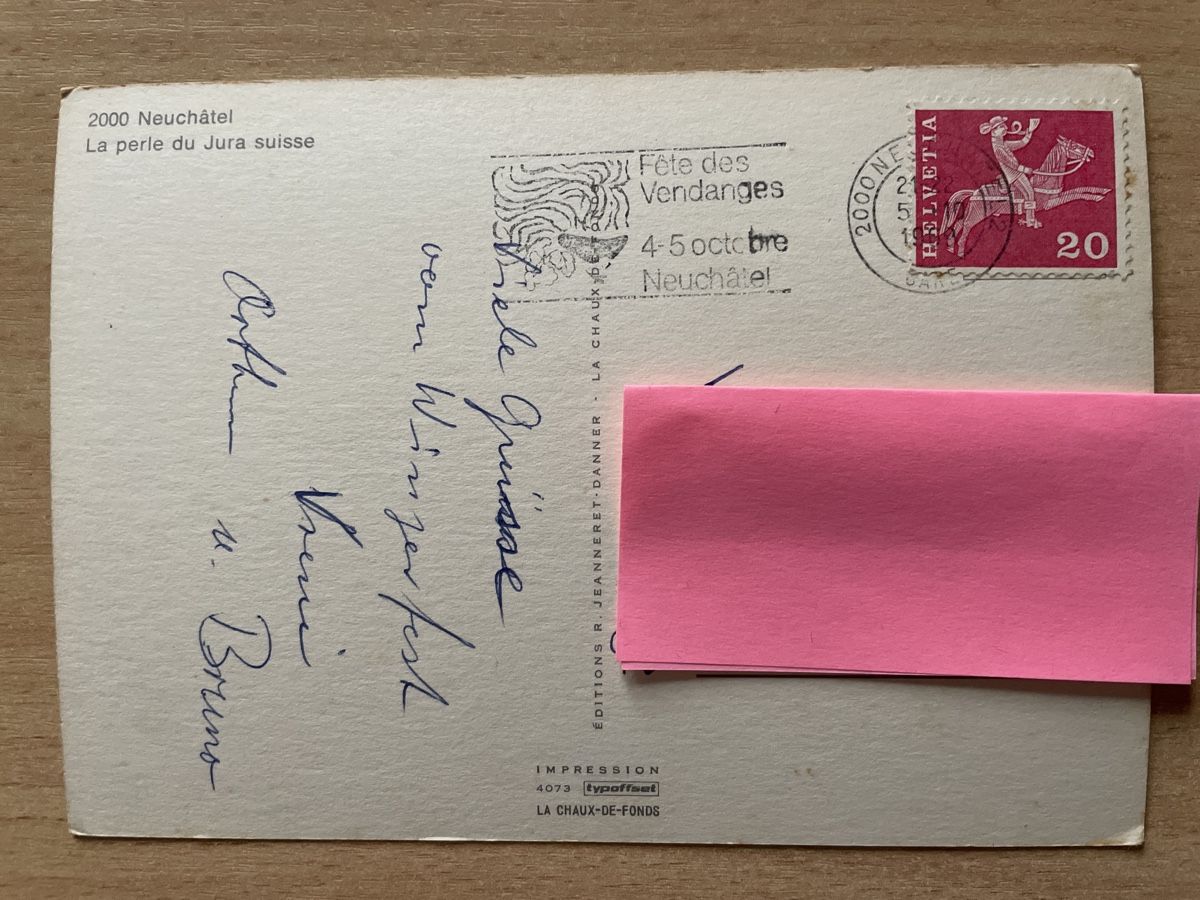 2000 Neuchâtel
La perle du Jura suisse
Fête des
Vendanges
4-5 octobre
Neuchâtel
HELVETIA
20
2000 NE
GARE
Viele Grüsse
vom Winzerfest
Vreni
u. Bruno
ÉDITIONS R. JEANNERET-DANNER - LA CHAUX DE
IMPRESSION
4073 typoffset
LA CHAUX-DE-FONDS